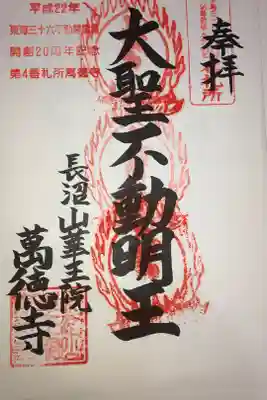 奉拝
大聖不動明王
長沼山華王院
萬徳寺
平成22年
東海三十六不動尊霊場
開創20周年記念
第4番札所萬徳寺